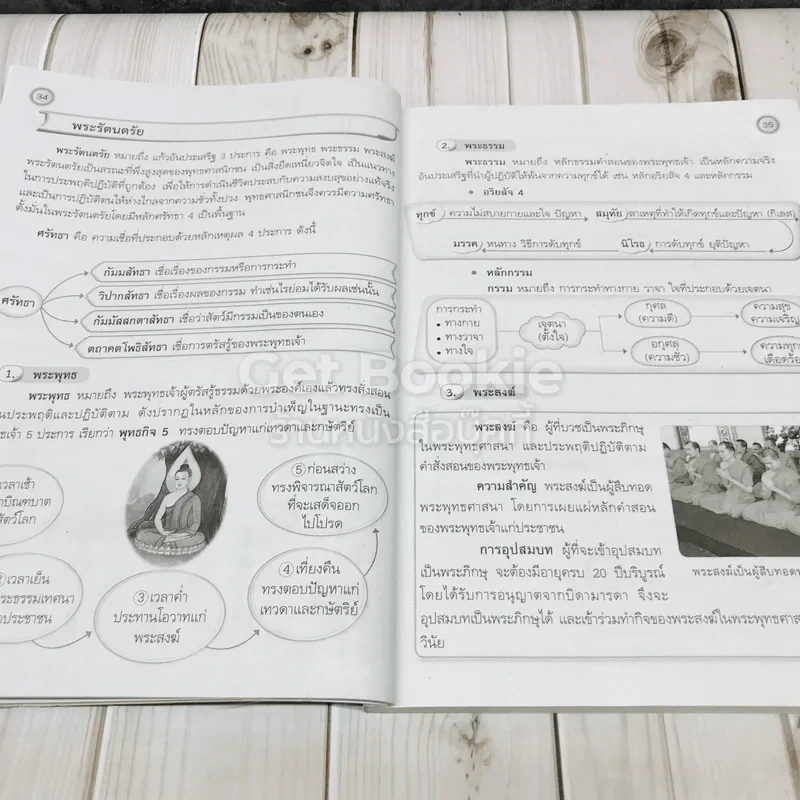 34
พระรัตนตรัย
พระรัตนตรัย หมายถึง แก้วอันประเสริฐ 3 ประการ คือ พระพุทธ พระธรรม พระสงฆ์
พระรัตนตรัยเป็นสรณะที่พึ่งสูงสุดของพุทธศาสนิกชน เป็นสิ่งยึดเหนี่ยวจิตใจ เป็นแนวทาง
ในการประพฤติปฏิบัติที่ถูกต้อง เพื่อให้การดำเนินชีวิตประสบกับความสงบสุขอย่างแท้จริง
และเป็นการปฏิบัติตนให้ห่างไกลจากความชั่วทั้งปวง พุทธศาสนิกชนจึงควรมีความศรัทธา
ตั้งมั่นในพระรัตนตรัยโดยมีหลักศรัทธา 4 เป็นพื้นฐาน
ศรัทธา คือ ความเชื่อที่ประกอบด้วยหลักเหตุผล 4 ประการ ดังนี้
ศรัทธา
กัมมสัทธา เชื่อเรื่องของกรรมหรือการกระทำ
วิปากสัทธา เชื่อเรื่องผลของกรรม ทำเช่นไรย่อมได้รับผลเช่นนั้น
กัมมัสสกตาสัทธา เชื่อว่าสัตว์มีกรรมเป็นของตนเอง
ตถาคตโพธิสัทธา เชื่อการตรัสรู้ของพระพุทธเจ้า
1. พระพุทธ
พระพุทธ หมายถึง พระพุทธเจ้าผู้ตรัสรู้ธรรมด้วยพระองค์เองแล้วทรงสั่งสอน
นประพฤติและปฏิบัติตาม ดังปรากฏในหลักของการบำเพ็ญในฐานะทรงเป็น
ธเจ้า 5 ประการ เรียกว่า พุทธกิจ 5 ทรงตอบปัญหาแก่เทวดาและกษัตริย์
เวลาเช้า
บิณฑบาต
สัตว์โลก
เวลาเย็น
ระธรรมเทศนา
ประชาชน
③ เวลาค่ำ
ประทานโอวาทแก่
พระสงฆ์
④ เที่ยงคืน
ทรงตอบปัญหาแก่
เทวดาและกษัตริย์
⑤ ก่อนสว่าง
ทรงพิจารณาสัตว์โลก
ที่จะเสด็จออก
ไปโปรด
35
2. พระธรรม
พระธรรม หมายถึง หลักธรรมคำสอนของพระพุทธเจ้า เป็นหลักความจริง
อันประเสริฐที่นำผู้ปฏิบัติให้พ้นจากความทุกข์ได้ เช่น หลักอริยสัจ 4 และหลักกรรม
• อริยสัจ 4
ทุกข์ ความไม่สบายกายและใจ ปัญหา สมุทัย สาเหตุที่ทำให้เกิดทุกข์และปัญหา (กิเลส)
มรรค หนทาง วิธีการดับทุกข์ นิโรธ การดับทุกข์ ยุติปัญหา
• หลักกรรม
กรรม หมายถึง การกระทำทางกาย วาจา ใจที่ประกอบด้วยเจตนา
การกระทำ
• ทางกาย
• ทางวาจา
• ทางใจ
เจตนา
(ตั้งใจ)
กุศล
(ความดี)
ความสุข
ความเจริญ
อกุศล
(ความชั่ว)
ความทุกข
เดือดร้อ
3. พระสงฆ์
พระสงฆ์ คือ ผู้ที่บวชเป็นพระภิกษุ
ในพระพุทธศาสนา และประพฤติปฏิบัติตาม
คำสั่งสอนของพระพุทธเจ้า
ความสำคัญ พระสงฆ์เป็นผู้สืบทอด
พระพุทธศาสนา โดยการเผยแผ่หลักคำสอน
ของพระพุทธเจ้าแก่ประชาชน
การอุปสมบท ผู้ที่จะเข้าอุปสมบท
เป็นพระภิกษุ จะต้องมีอายุครบ 20 ปีบริบูรณ์
โดยได้รับการอนุญาตจากบิดามารดา จึงจะ
อุปสมบทเป็นพระภิกษุได้ และเข้าร่วมทำกิจของพระสงฆ์ในพระพุทธศาส
วินัย
พระสงฆ์เป็นผู้สืบทอดพ
Get Bookie
ร้านหนังสือมือหนึ่ง